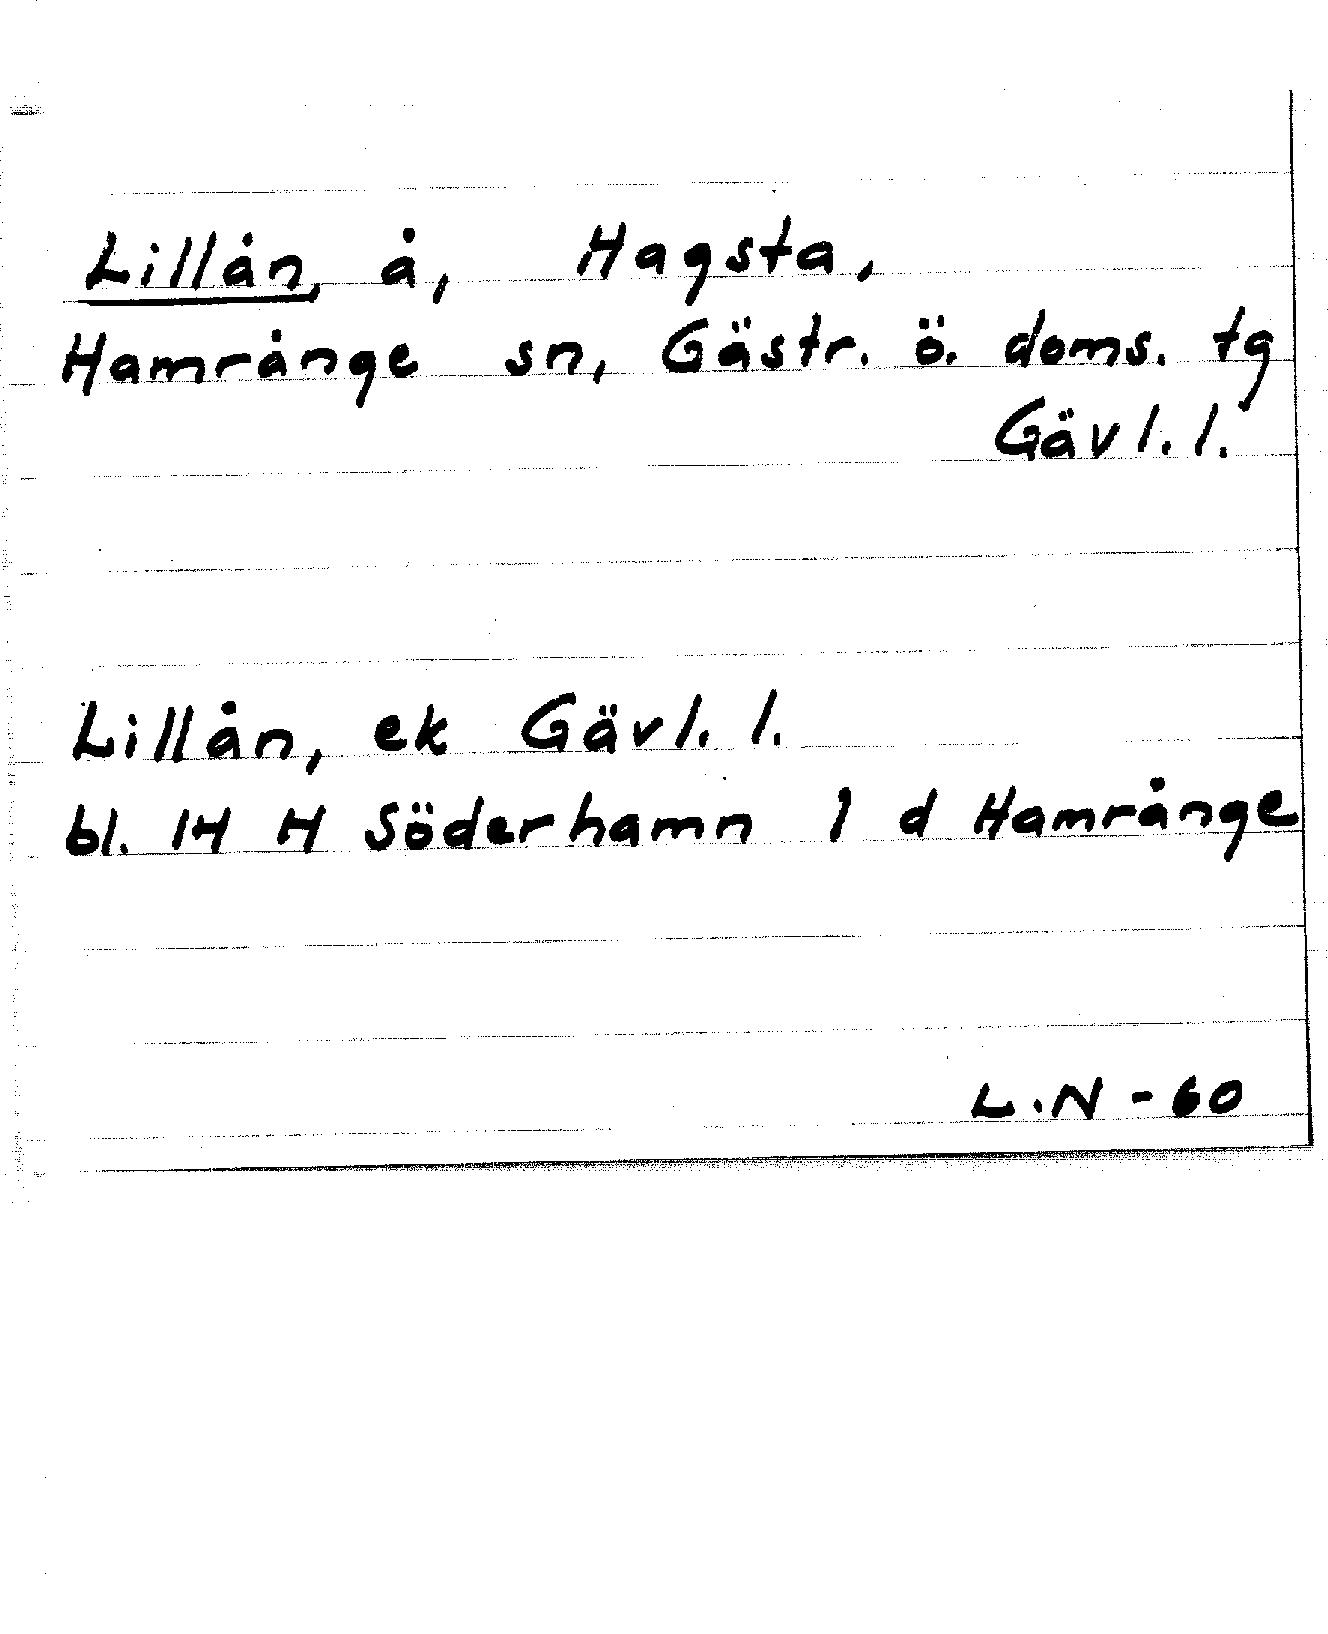 Lillån, å, Hagsta,
Hamrånge sn, Gästr. ö. doms. tg
Gävl. l.
Lillån, ek Gävl. l.
bl. 14 H Söderhamn 1 d Hamrånge
L.N - 60